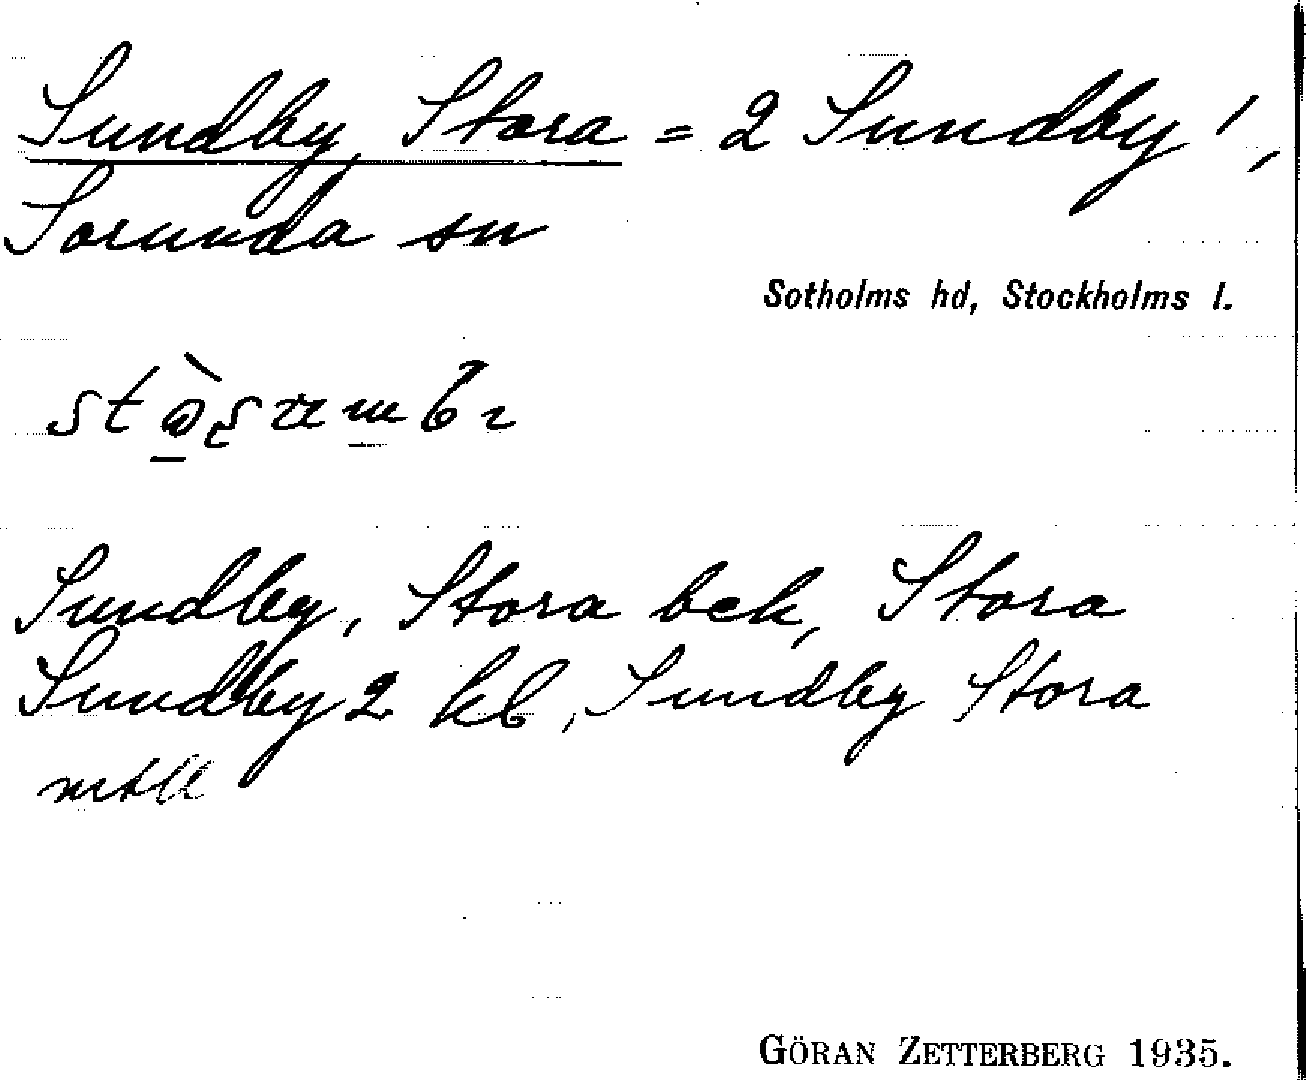 Sundby, Stora = 2 Sundby',
Sorunda sn
Sotholms hd, Stockholms l.
Sundby, Stora bek, Stora
Sundby 2 kb, Sundby Stora
mtll
GÖRAN ZETTERBERG 1935.